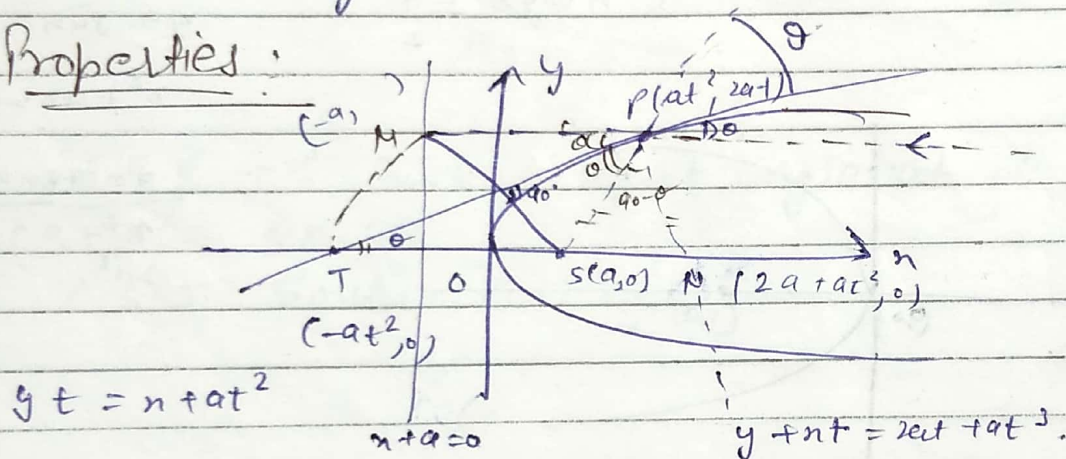 Properties :
y
θ
P(at², 2at)
(-a,
M
α
θ
θ
90°
90-θ
θ
x
T
O
S(a,0)
N (2a + at², 0)
(-at², 0)
yt = x + at²
x + a = 0
y + xt = 2at + at³.